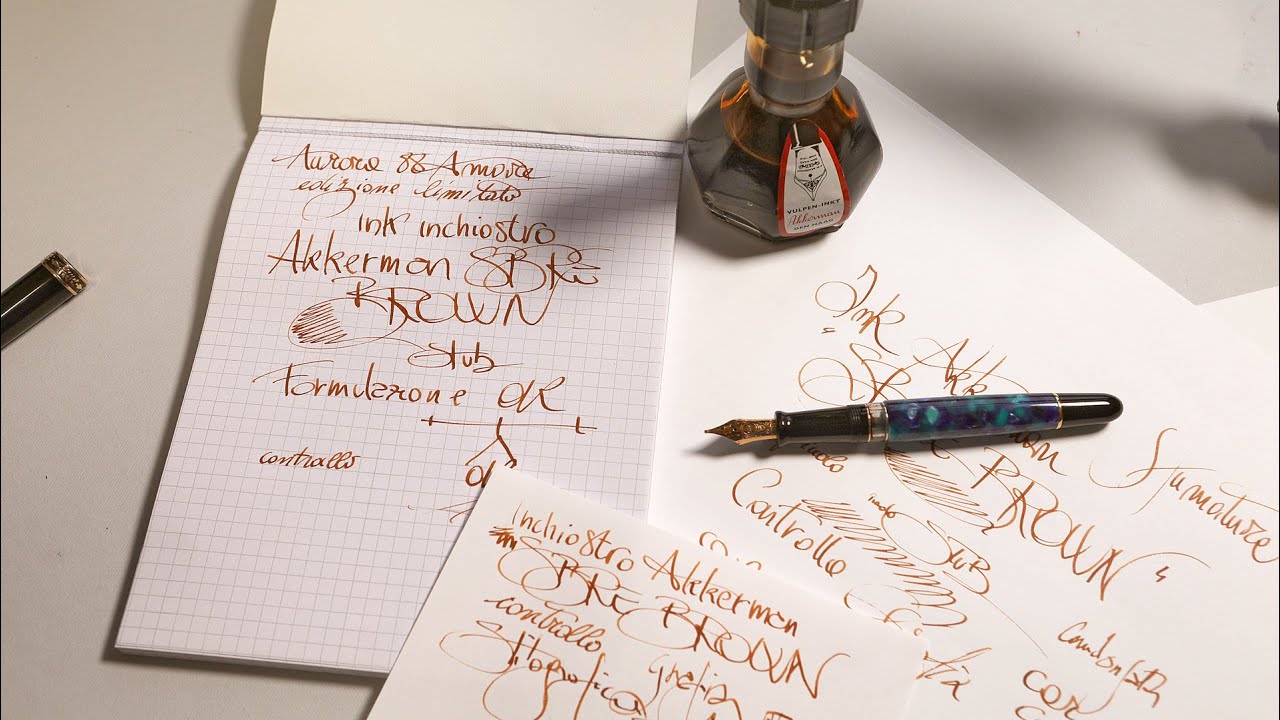 Aurora 88 Amoira
edizione limitata
Ink inchiostro
Akkerman SBRE
BROWN
Stub
Formulazione OK
controllo
OK
VULPEN-INKT
Akkerman
DEN HAAG
"Ink Akkerman
SBRE BROWN"
Sfumature
Controllo
Stub
Inchiostro Akkerman
SBRE BROWN
controllo
Grafia
Stilografica